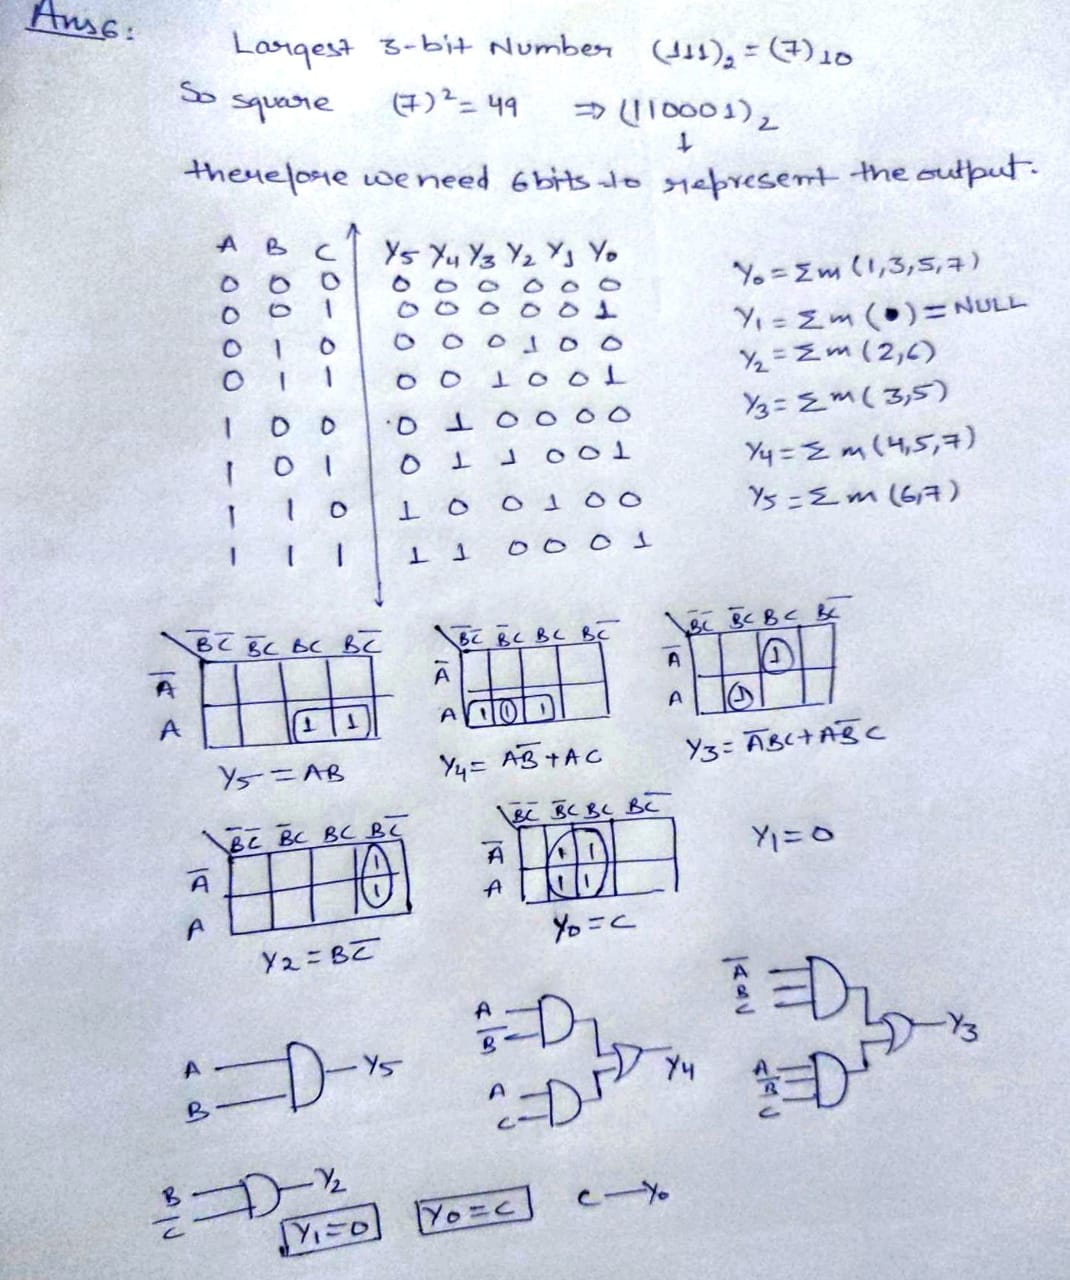 Ans 6:
Largest 3-bit Number (111)₂ = (7)10
So square (7)² = 49 ⇒ (110001)₂
↓
therefore we need 6 bits to represent the output.
A B C Y5 Y4 Y3 Y2 Y1 Y0
0 0 0 0 0 0 0 0 0
0 0 1 0 0 0 0 0 1
0 1 0 0 0 0 1 0 0
0 1 1 0 0 1 0 0 1
1 0 0 0 1 0 0 0 0
1 0 1 0 1 1 0 0 1
1 1 0 1 0 0 1 0 0
1 1 1 1 1 0 0 0 1
Y0 = Σm (1,3,5,7)
Y1 = Σm ( ) = NULL
Y2 = Σm (2,6)
Y3 = Σm (3,5)
Y4 = Σm (4,5,7)
Y5 = Σm (6,7)
B̅C̅ B̅C BC BC̅
A̅
A 1 1
Y5 = AB
B̅C̅ B̅C BC BC̅
A̅
A 1 1 1
Y4 = AB̅ + AC
B̅C̅ B̅C BC BC̅
A̅ 1
A 1
Y3 = A̅BC + AB̅C
B̅C̅ B̅C BC BC̅
A̅ 1
A 1
Y2 = BC̅
B̅C̅ B̅C BC BC̅
A̅ 1 1
A 1 1
Y0 = C
Y1 = 0
A
B
Y5
A
B̅
A
C
Y4
A̅
B
C
A
B̅
C
Y3
B
C̅
Y2
Y1 = 0
Y0 = C
C — Y0